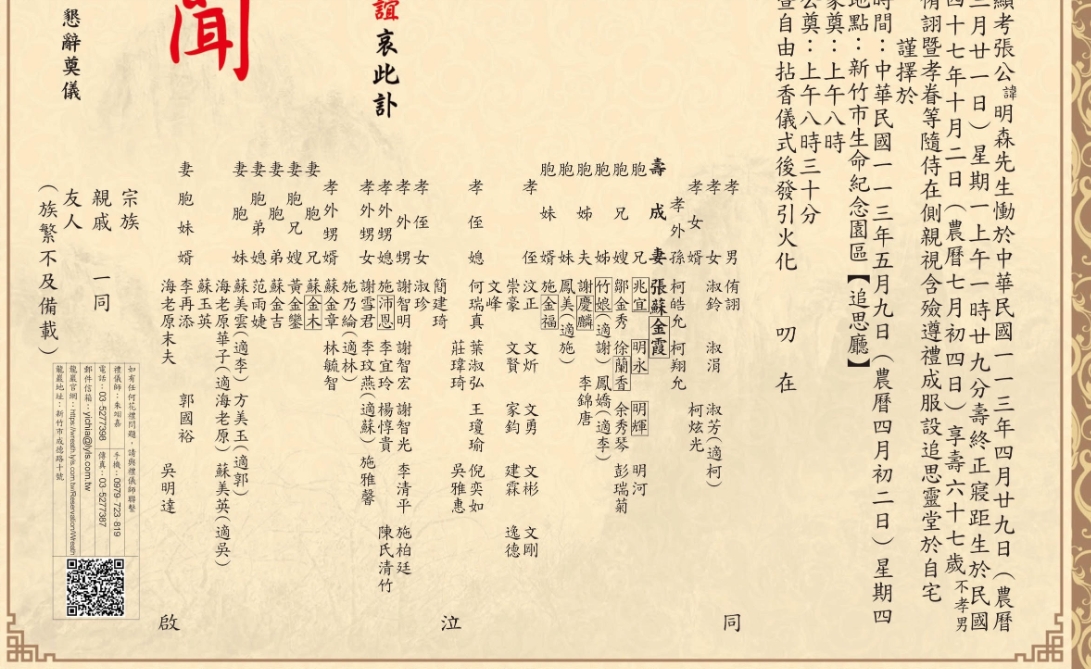 顯考張公諱明森先生慟於中華民國一一三年四月廿九日（農曆
三月廿一日）星期一上午一時廿九分壽終正寢距生於民國
四十七年十月二日（農曆七月初四日）享壽六十七歲不孝男
侑翃暨孝眷等隨侍在側親視含殮遵禮成服設追思靈堂於自宅
謹擇於
時間：中華民國一一三年五月九日（農曆四月初二日）星期四
地點：新竹市生命紀念園區【追思廳】
家奠：上午八時
公奠：上午八時三十分
暨自由拈香儀式後發引火化 叨 在
誼哀此訃
聞
懇辭奠儀
孝男 侑翃
孝女 淑鈴 淑涓 淑芳（適柯）
孝女婿 柯炫光
孝外孫 柯皓允 柯翔允
壽成妻 張蘇金霞
胞兄 兆宜 明永 明輝 明河
胞兄嫂 鄒金秀 徐蘭香 余秀琴 彭瑞菊
胞姊 竹娘（適謝） 鳳嬌（適李）
胞姊夫 謝慶麟 李錦唐
胞妹 鳳美（適施）
胞妹婿 施金福
孝侄 汶正 文炘 文勇 文彬 文剛
崇豪 文賢 家鈞 建霖 逸德
文峰
孝侄媳 何瑞真 葉淑弘 王瓊瑜 倪奕如
莊瑋琦 吳雅惠
簡建琦
孝侄女 淑珍
孝外甥 謝智明 謝智宏 謝智光 李清平 施柏廷
孝外甥媳 施沛恩 李宜玲 楊惇貴 陳氏清竹
孝外甥女 謝雪君 李玟燕（適蘇） 施雅馨
施乃綸（適林）
孝外甥婿 蘇金章 林毓智
妻胞兄 蘇金木
妻胞兄嫂 黃金鑾
妻胞弟 蘇金吉
妻胞弟媳 范雨婕
妻胞妹 蘇美雲（適李） 方美玉（適郭）
海老原華子（適海老原） 蘇美英（適吳）
蘇玉英
妻胞妹婿 李再添 郭國裕
海老原末夫 吳明達
同
泣
啟
宗族
親戚 一同
友人
（族繁不及備載）
如有任何花禮問題，請與禮儀師聯繫
禮儀師：朱翊嘉 手機：0979-723-819
電話：03-5277398 傳真：03-5277387
郵件信箱：yichia@lyls.com.tw
龍巖官網：https://wreath.lyls.com.tw/Reservation/Wreath
龍巖地址：新竹市成德路十號